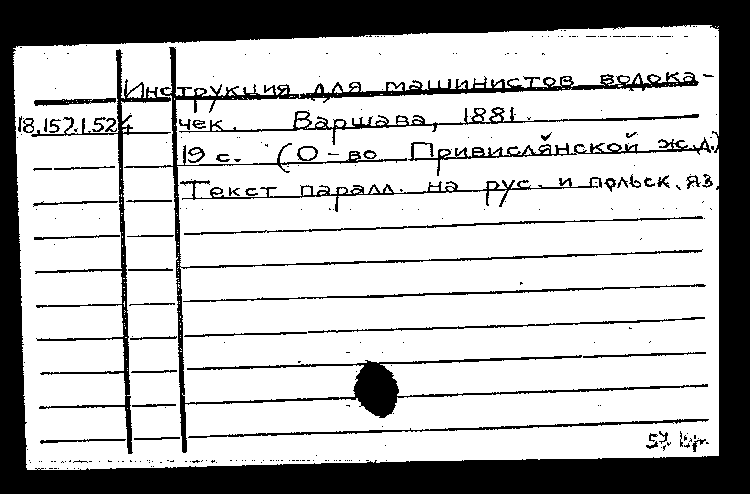 Инструкция для машинистов водока-
18.157.1.524 чек. Варшава, 1881.
19 с. (О-во Привислянской ж.д.)
Текст паралл. на рус. и польск. яз.